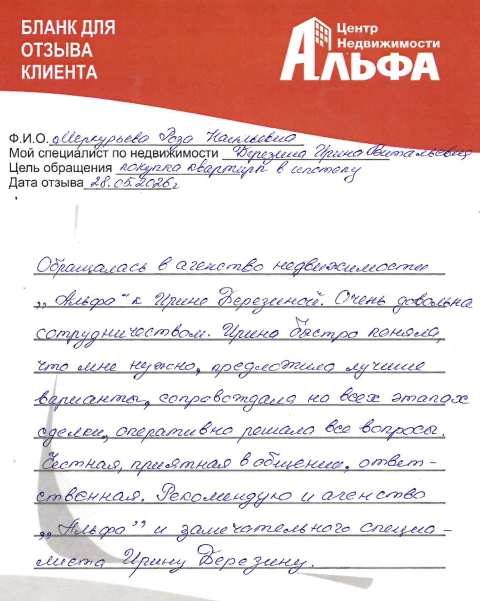 БЛАНК ДЛЯ
ОТЗЫВА
КЛИЕНТА
Центр
Недвижимости
АЛЬФА
Ф.И.О. Меркурьева Роза Наильевна
Мой специалист по недвижимости Березина Ирина Витальевна
Цель обращения покупка квартиры в ипотеку
Дата отзыва 28.05.2026г
Обращалась в агенство недвижимости
„Альфа" к Ирине Березиной. Очень довольна
сотрудничеством. Ирина быстро поняла,
что мне нужно, предложила лучшие
варианты, сопровождала на всех этапах
сделки, оперативно решала все вопросы.
Честная, приятная в общении, ответ-
ственная. Рекомендую и агенство
„Альфа" и замечательного специа-
листа Ирину Березину.